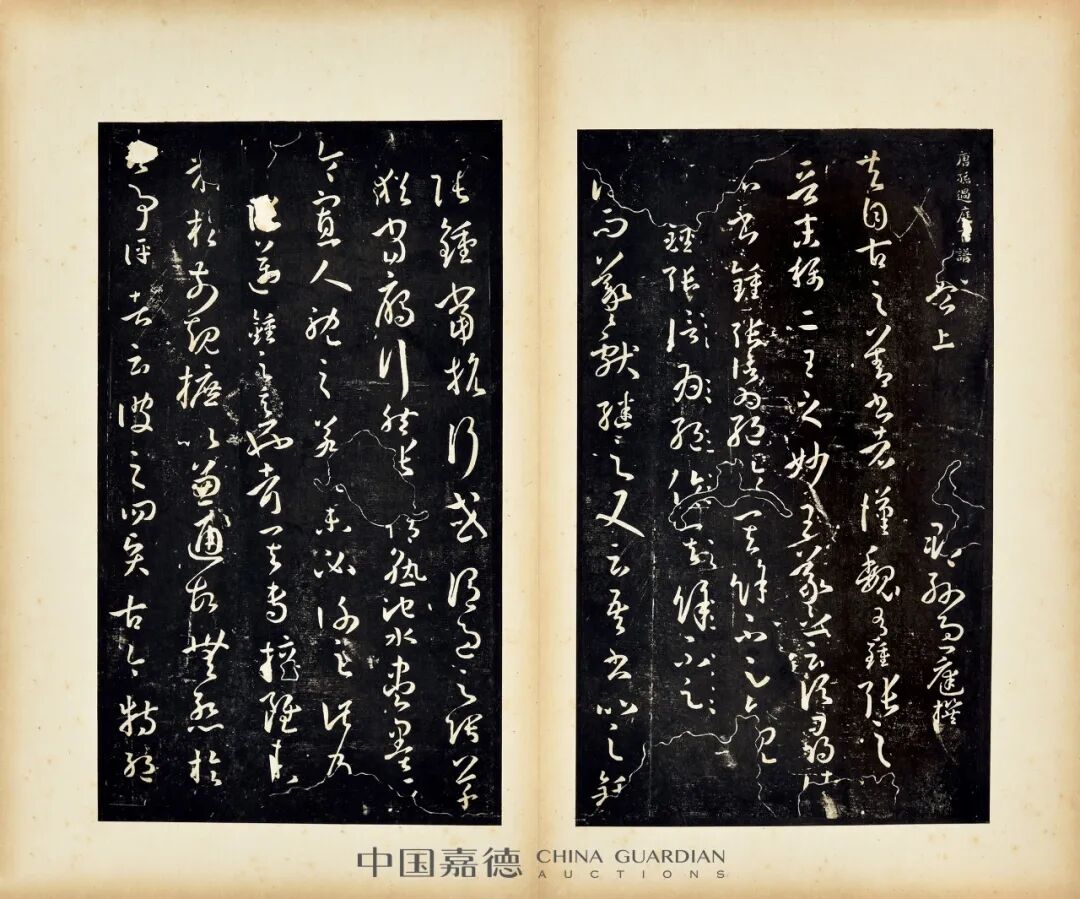 唐孫過庭書譜
卷上 吳郡孫過庭撰
夫自古之善書者漢魏有鍾張之絕
晉末稱二王之妙王羲之云頃尋諸
名書鍾張信為絕倫其餘不足觀
鍾張信為絕倫其餘不足
沒而羲獻繼之又云吾書比之鍾
張鍾當抗行或謂過之張草
猶當雁行然張精熟池水盡墨假
令寡人耽之若此未必謝之此乃
張邁鍾之意也考其專擅雖未
果於前規摭以兼通故無慚於
即事評者云彼之四賢古今特絕
中国嘉德 CHINA GUARDIAN AUCTIONS